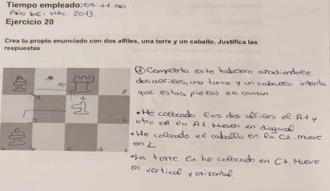 Tiempo empleado: 05:11:00
AÑO DE: NAC. 2013
Ejercicio 20
Crea tu propio enunciado con dos alfiles, una torre y un caballo. Justifica las
respuestas
① Completa este tablero añadiendole
dos alfiles, una torre y un caballo intenta
que estas piezas se coman
• He colocado los dos alfiles el A1 y
otro en la A3. Mueven en diagonal
• He colocado el caballo en la C2. mueve
en L
• La torre la he colocado en C3. Mueve
en vertical y orizontal